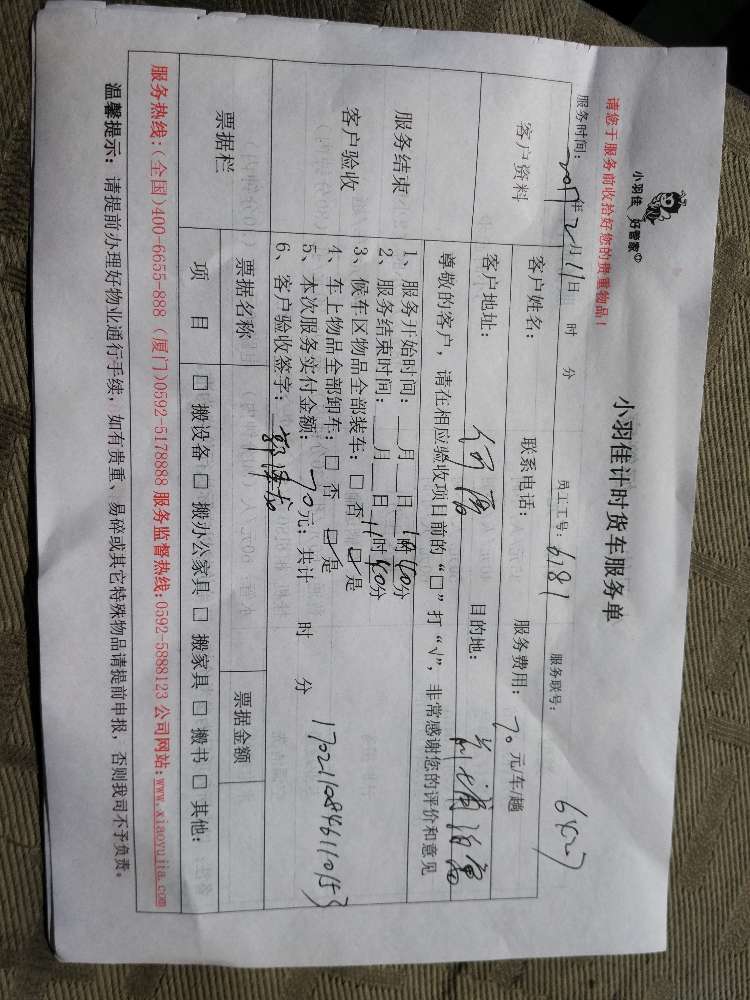 小羽佳 好管家
小羽佳计时货车服务单
请您于服务前收拾好您的贵重物品！
服务时间：2017年2月11日 时 分 员工工号：6181 服务联号：6427
客户资料 客户姓名： 联系电话： 服务费用：70元/车/趟
客户地址： 目的地：
尊敬的客户，请在相应验收项目前的“□”打“√”，非常感谢您的评价和意见
服务结束
客户验收
1、服务开始时间：__月__日 时40分
2、服务结束时间：__月__日11时40分
3、候车区物品全部装车：□ 否 ☑ 是
4、车上物品全部卸车：□ 否 ☑ 是
5、本次服务实付金额：70元；共计 时 分
6、客户验收签字：
1702110846110153
票据栏 票据名称 票据金额
项 目 □ 搬设备 □ 搬办公家具 □ 搬家具 □ 搬书 □ 其他：
服务热线：(全国)400-6655-888 (厦门)0592-5178888 服务监督热线：0592-5888123 公司网站：www.xiaoyujia.com
温馨提示：请提前办理好物业通行手续，如有贵重、易碎或其它特殊物品请提前申报，否则我司不予负责。